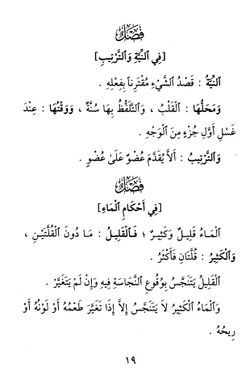 فَصْلٌ
[فِي النِّيَّةِ وَالتَّرْتِيبِ]
النِّيَّةُ : قَصْدُ الشَّيْءِ مُقْتَرِنًا بِفِعْلِهِ .
وَمَحَلُّهَا : الْقَلْبُ ، وَالتَّلَفُّظُ بِهَا سُنَّةٌ ، وَوَقْتُهَا : عِنْدَ
غَسْلِ أَوَّلِ جُزْءٍ مِنَ الْوَجْهِ .
وَالتَّرْتِيبُ : أَلَّا يُقَدَّمَ عُضْوٌ عَلَىٰ عُضْوٍ .
فَصْلٌ
[فِي أَحْكَامِ الْمَاءِ]
الْمَاءُ قَلِيلٌ وَكَثِيرٌ ؛ فَالْقَلِيلُ : مَا دُونَ الْقُلَّتَيْنِ ،
وَالْكَثِيرُ : قُلَّتَانِ فَأَكْثَرُ .
الْقَلِيلُ يَتَنَجَّسُ بِوُقُوعِ النَّجَاسَةِ فِيهِ وَإِنْ لَمْ يَتَغَيَّرْ .
وَالْمَاءُ الْكَثِيرُ لَا يَتَنَجَّسُ إِلَّا إِذَا تَغَيَّرَ طَعْمُهُ أَوْ لَوْنُهُ أَوْ
رِيحُهُ .
١٩